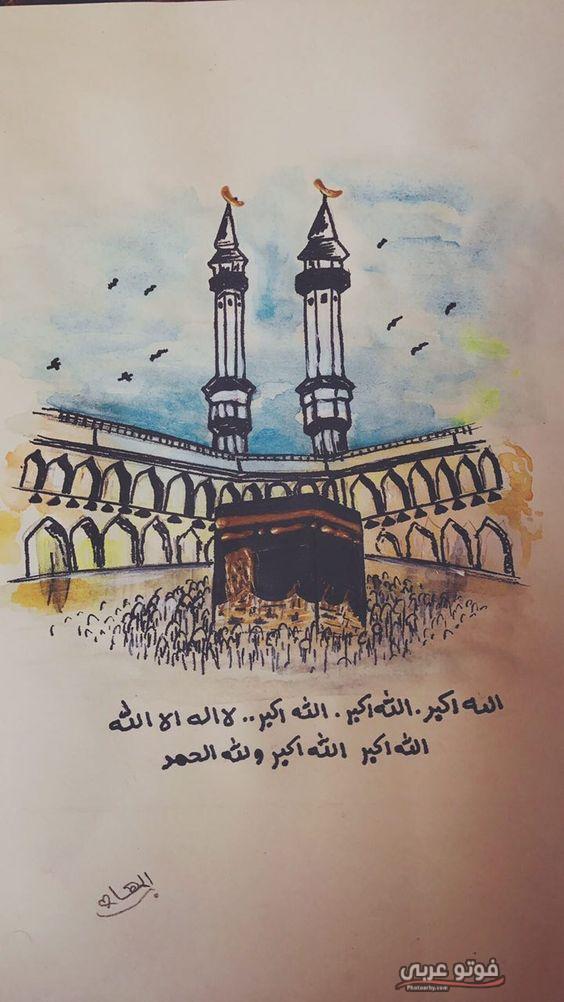 الله اكبر. الله اكبر. الله اكبر.. لا اله الا الله
الله اكبر الله اكبر ولله الحمد
فوتو عربي
Photoarby.com